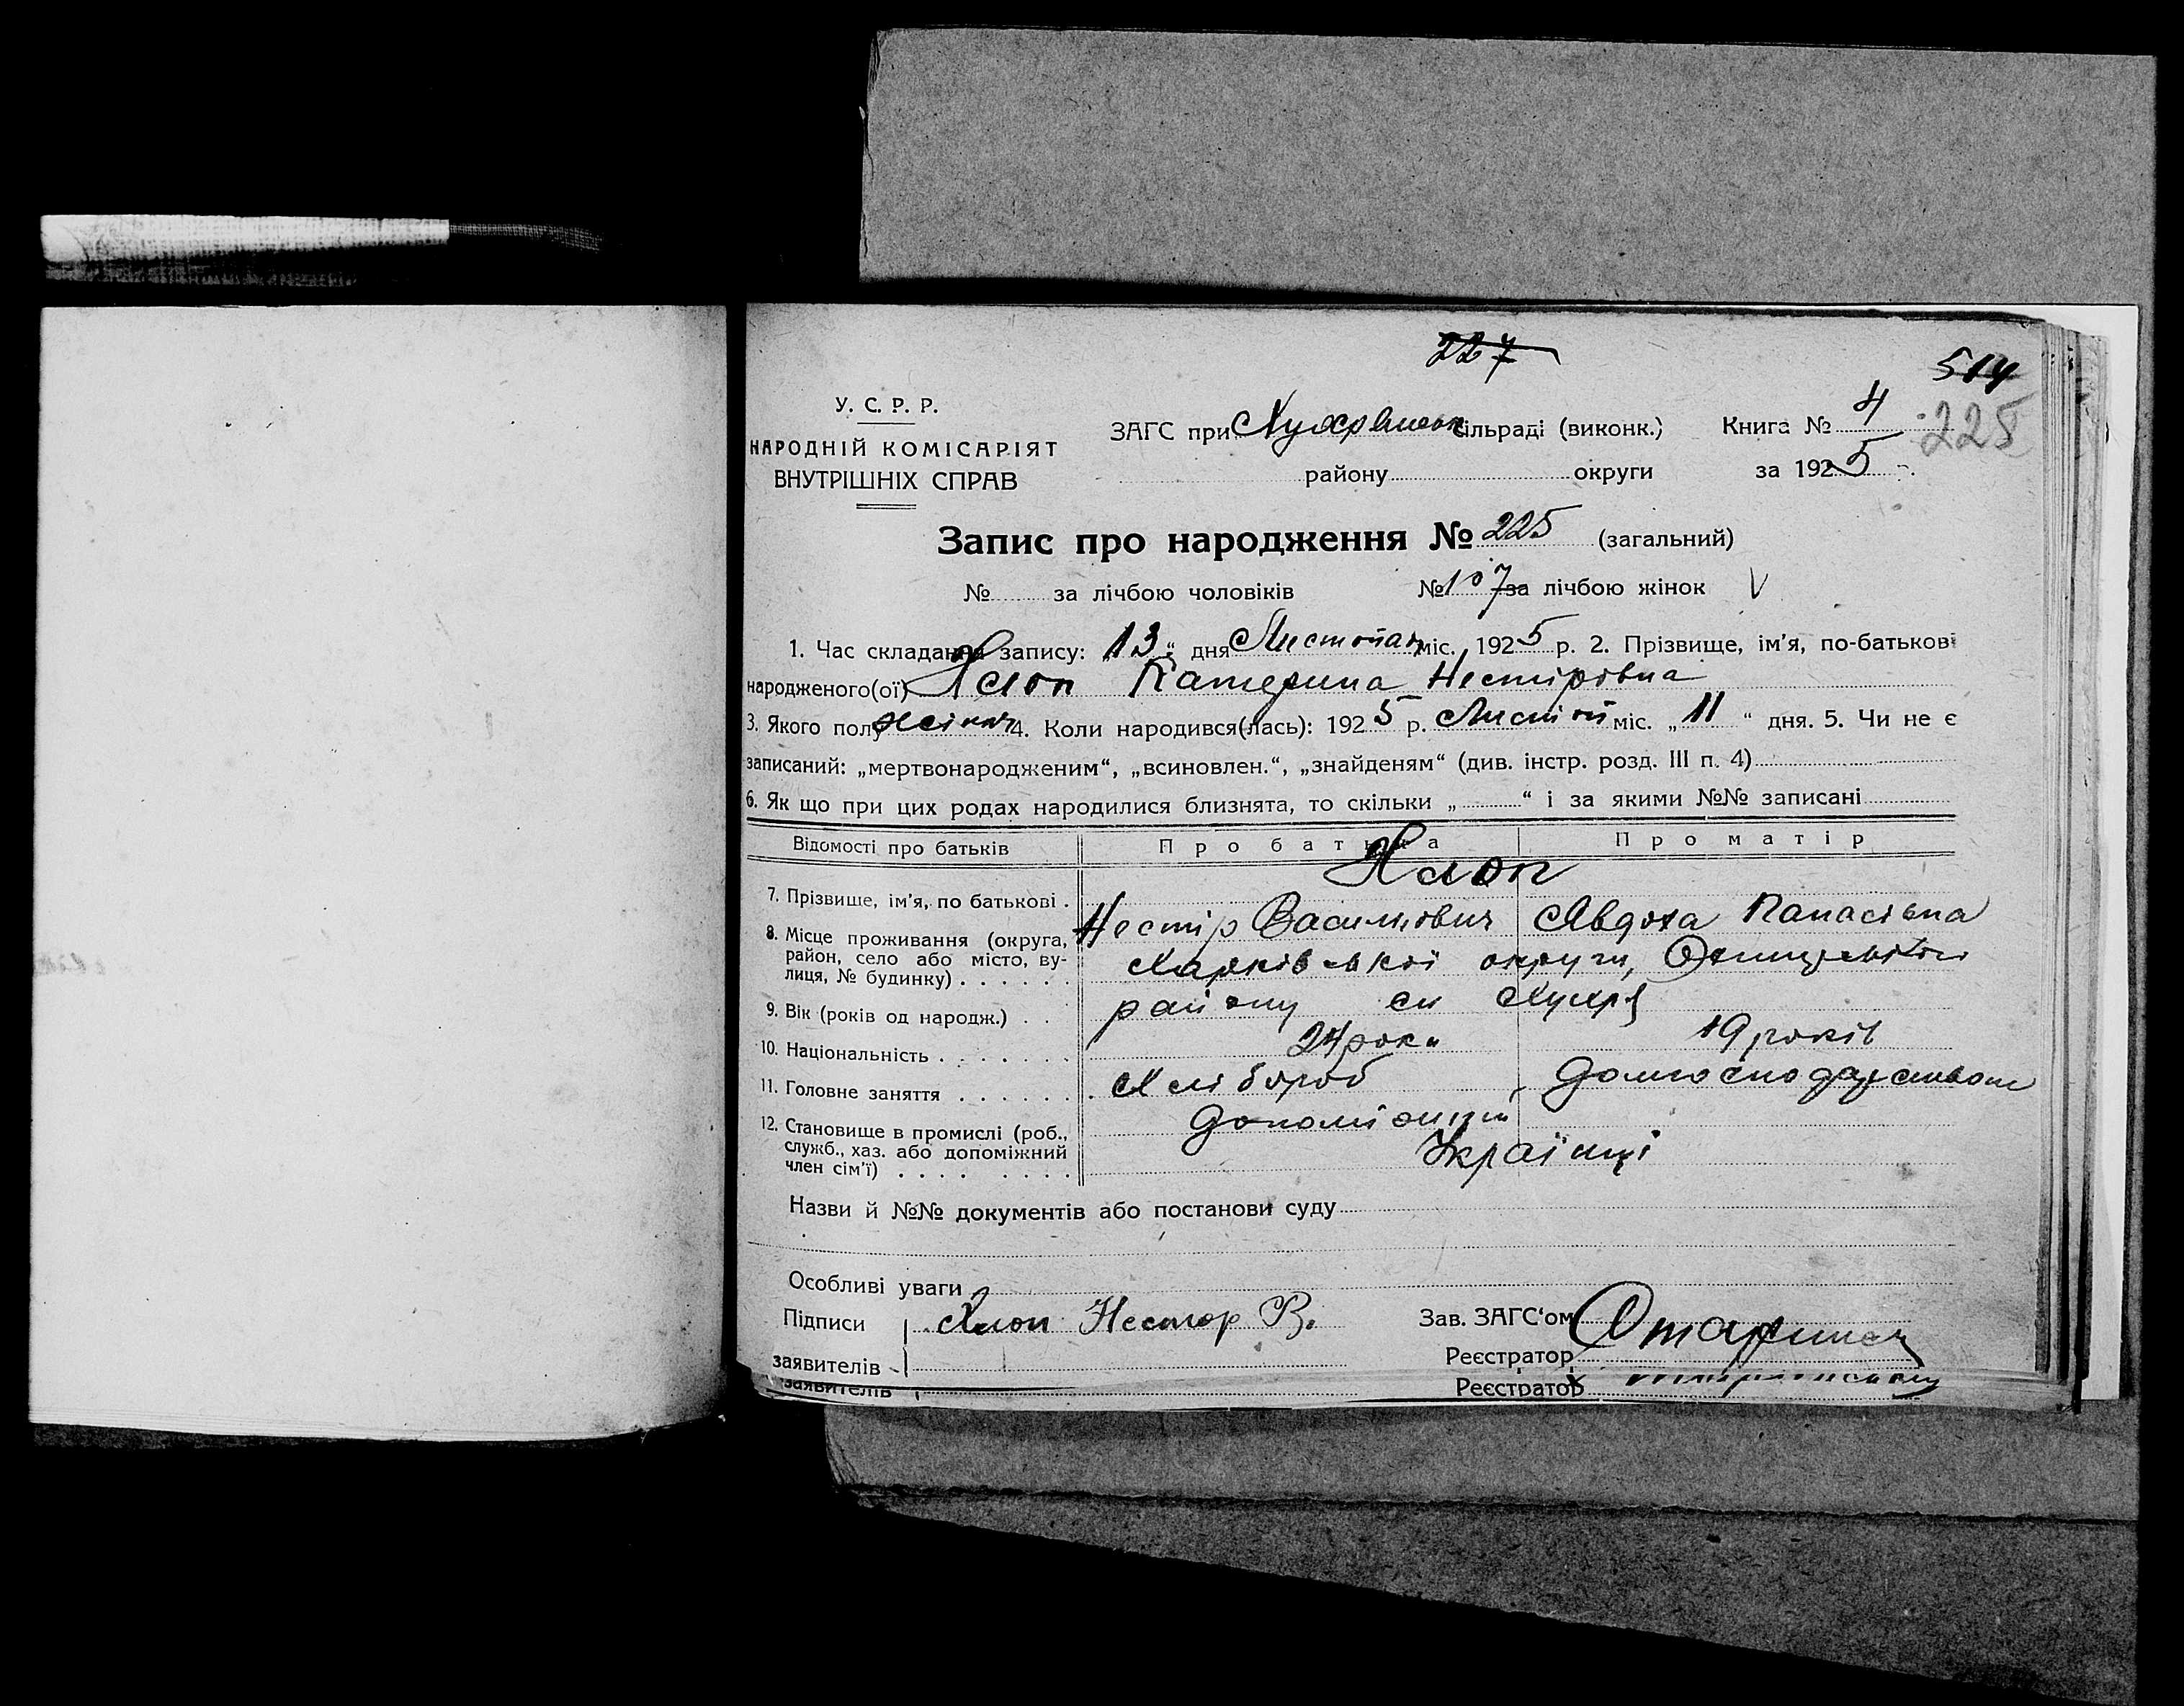 227
514
У. С. Р. Р.
НАРОДНІЙ КОМІСАРІЯТ
ВНУТРІШНІХ СПРАВ
ЗАГС при Кухрянськ сільраді (виконк.)
району округи
Книга № 4
225
за 1925
Запис про народження № 225 (загальний)
№ за лічбою чоловіків № 107 за лічбою жінок V
1. Час складання запису: „13“ дня Листопад міс. 1925 р. 2. Прізвище, ім'я, по-батькові
народженого(ої) Хлоп Катерина Нестірівна
3. Якого полу жіноч 4. Коли народився(лась): 1925 р. Листоп міс. „11“ дня. 5. Чи не є
записаний: „мертвонародженим“, „всиновлен.“, „знайденям“ (див. інстр. розд. III п. 4)
6. Як що при цих родах народилися близнята, то скільки „ “ і за якими №№ записані
Відомості про батьків Про батька Про матір
Хлоп
7. Прізвище, ім'я, по батькові .
Нестір Васильович Явдоха Панасівна
8. Місце проживання (округа,
район, село або місто, вулиця, № будинку) . . . . . .
Харківської округи,
району сл Кухря
9. Вік (років од народж.) . .
24 роки 19 років
10. Національність . . . . . . .
11. Головне заняття . . . . . .
Хлібороб Домгосподарством
12. Становище в промислі (роб.,
служб., хаз. або допоміжний
член сім'ї) . . . . . . . .
Українці
Назви й №№ документів або постанови суду
Особливі уваги
Підписи Хлоп Нестор В.
заявителів
Зав. ЗАГС'ом
Реєстратор
заявителів
Реєстратор